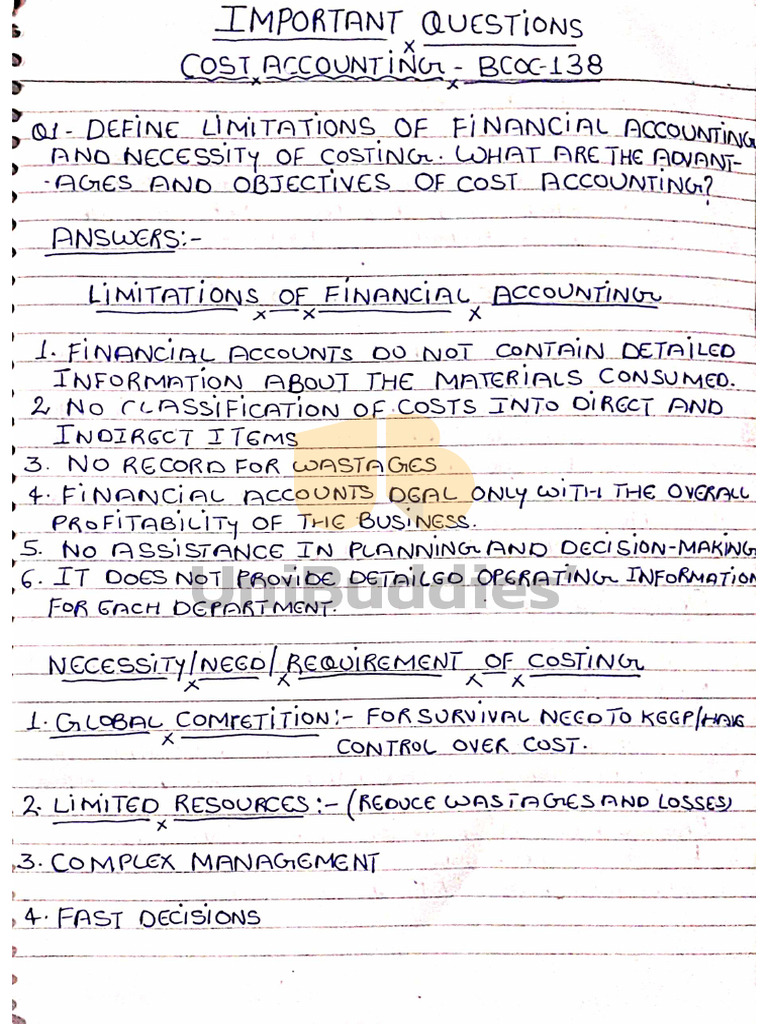 IMPORTANT QUESTIONS
COST ACCOUNTING - BCOC-138
Q1- DEFINE LIMITATIONS OF FINANCIAL ACCOUNTING
AND NECESSITY OF COSTING. WHAT ARE THE ADVANT-
-AGES AND OBJECTIVES OF COST ACCOUNTING?
ANSWERS:-
LIMITATIONS OF FINANCIAL ACCOUNTING
1. FINANCIAL ACCOUNTS DO NOT CONTAIN DETAILED
INFORMATION ABOUT THE MATERIALS CONSUMED.
2 NO CLASSIFICATION OF COSTS INTO DIRECT AND
INDIRECT ITEMS
3. NO RECORD FOR WASTAGES
4. FINANCIAL ACCOUNTS DEAL ONLY WITH THE OVERALL
PROFITABILITY OF THE BUSINESS.
5. NO ASSISTANCE IN PLANNING AND DECISION-MAKING
6. IT DOES NOT PROVIDE DETAILED OPERATING INFORMATION
UniBuddies
FOR EACH DEPARTMENT.
NECESSITY/NEED/REQUIREMENT OF COSTING
1. GLOBAL COMPETITION:- FOR SURVIVAL NEED TO KEEP/HAVE
CONTROL OVER COST.
2. LIMITED RESOURCES:- (REDUCE WASTAGES AND LOSSES)
3. COMPLEX MANAGEMENT
4. FAST DECISIONS